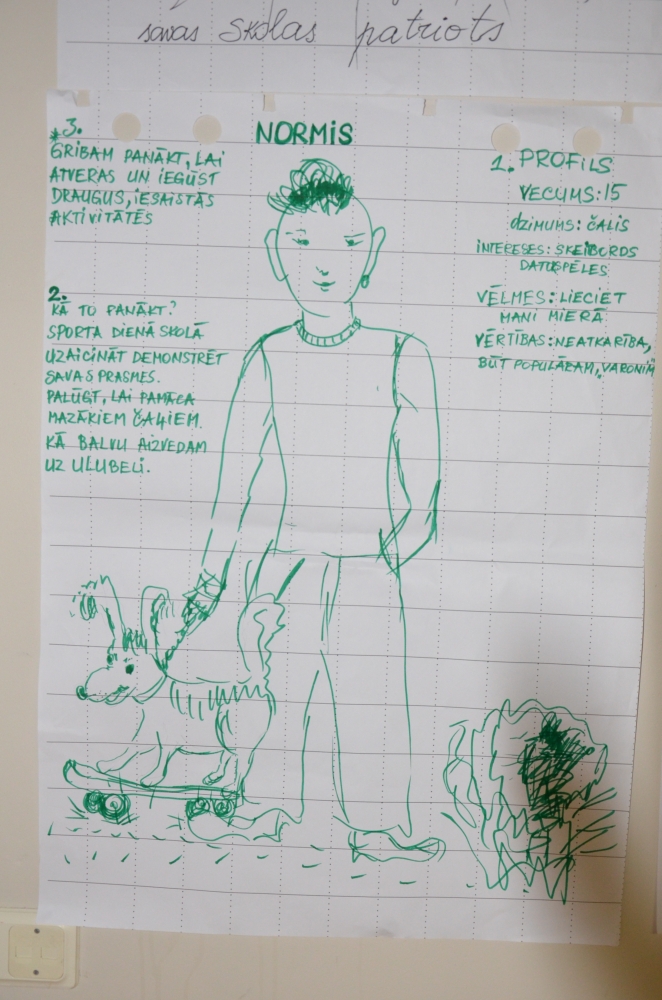 savas skolas patriots
NORMIS
*3.
GRIBAM PANĀKT, LAI
ATVERAS UN IEGŪST
DRAUGUS, IESAISTĀS
AKTIVITĀTĒS
2.
KĀ TO PANĀKT?
SPORTA DIENĀ SKOLĀ
UZAICINĀT DEMONSTRĒT
SAVAS PRASMES.
PALŪGT, LAI PAMĀCA
MAZĀKIEM ČAĻIEM.
KĀ BALVU AIZVEDAM
UZ ULUBELI.
1. PROFILS
VECUMS: 15
DZIMUMS: ČALIS
INTERESES: SKEIBORDS
DATORSPĒLES
VĒLMES: LIECIET
MANI MIERĀ
VĒRTĪBAS: NEATKARĪBA,
BŪT POPULĀRAM, VARONIM